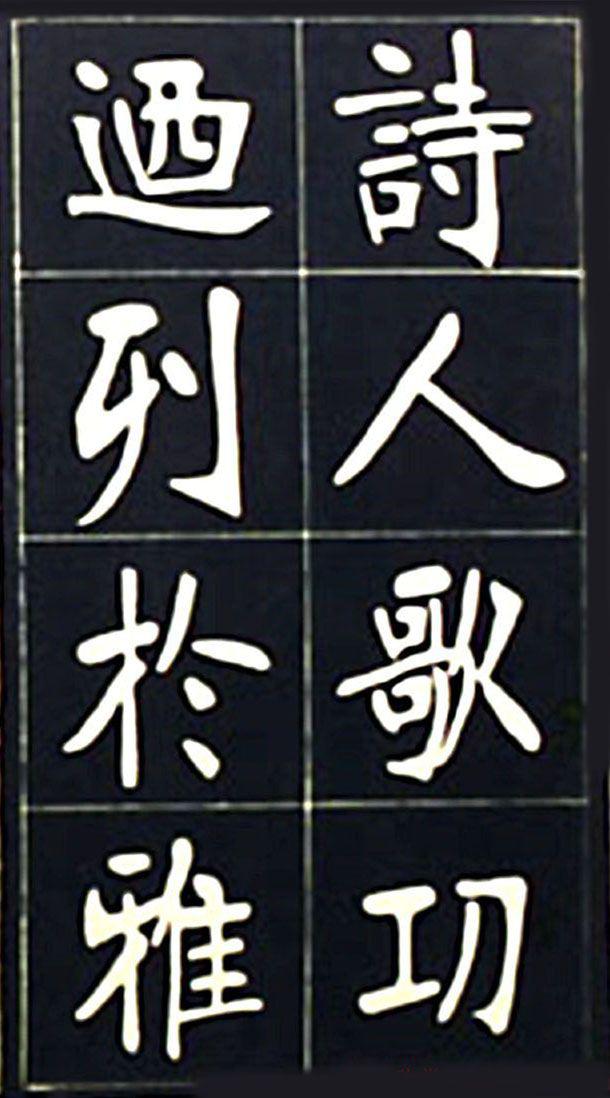 詩人歌功
迺列於雅